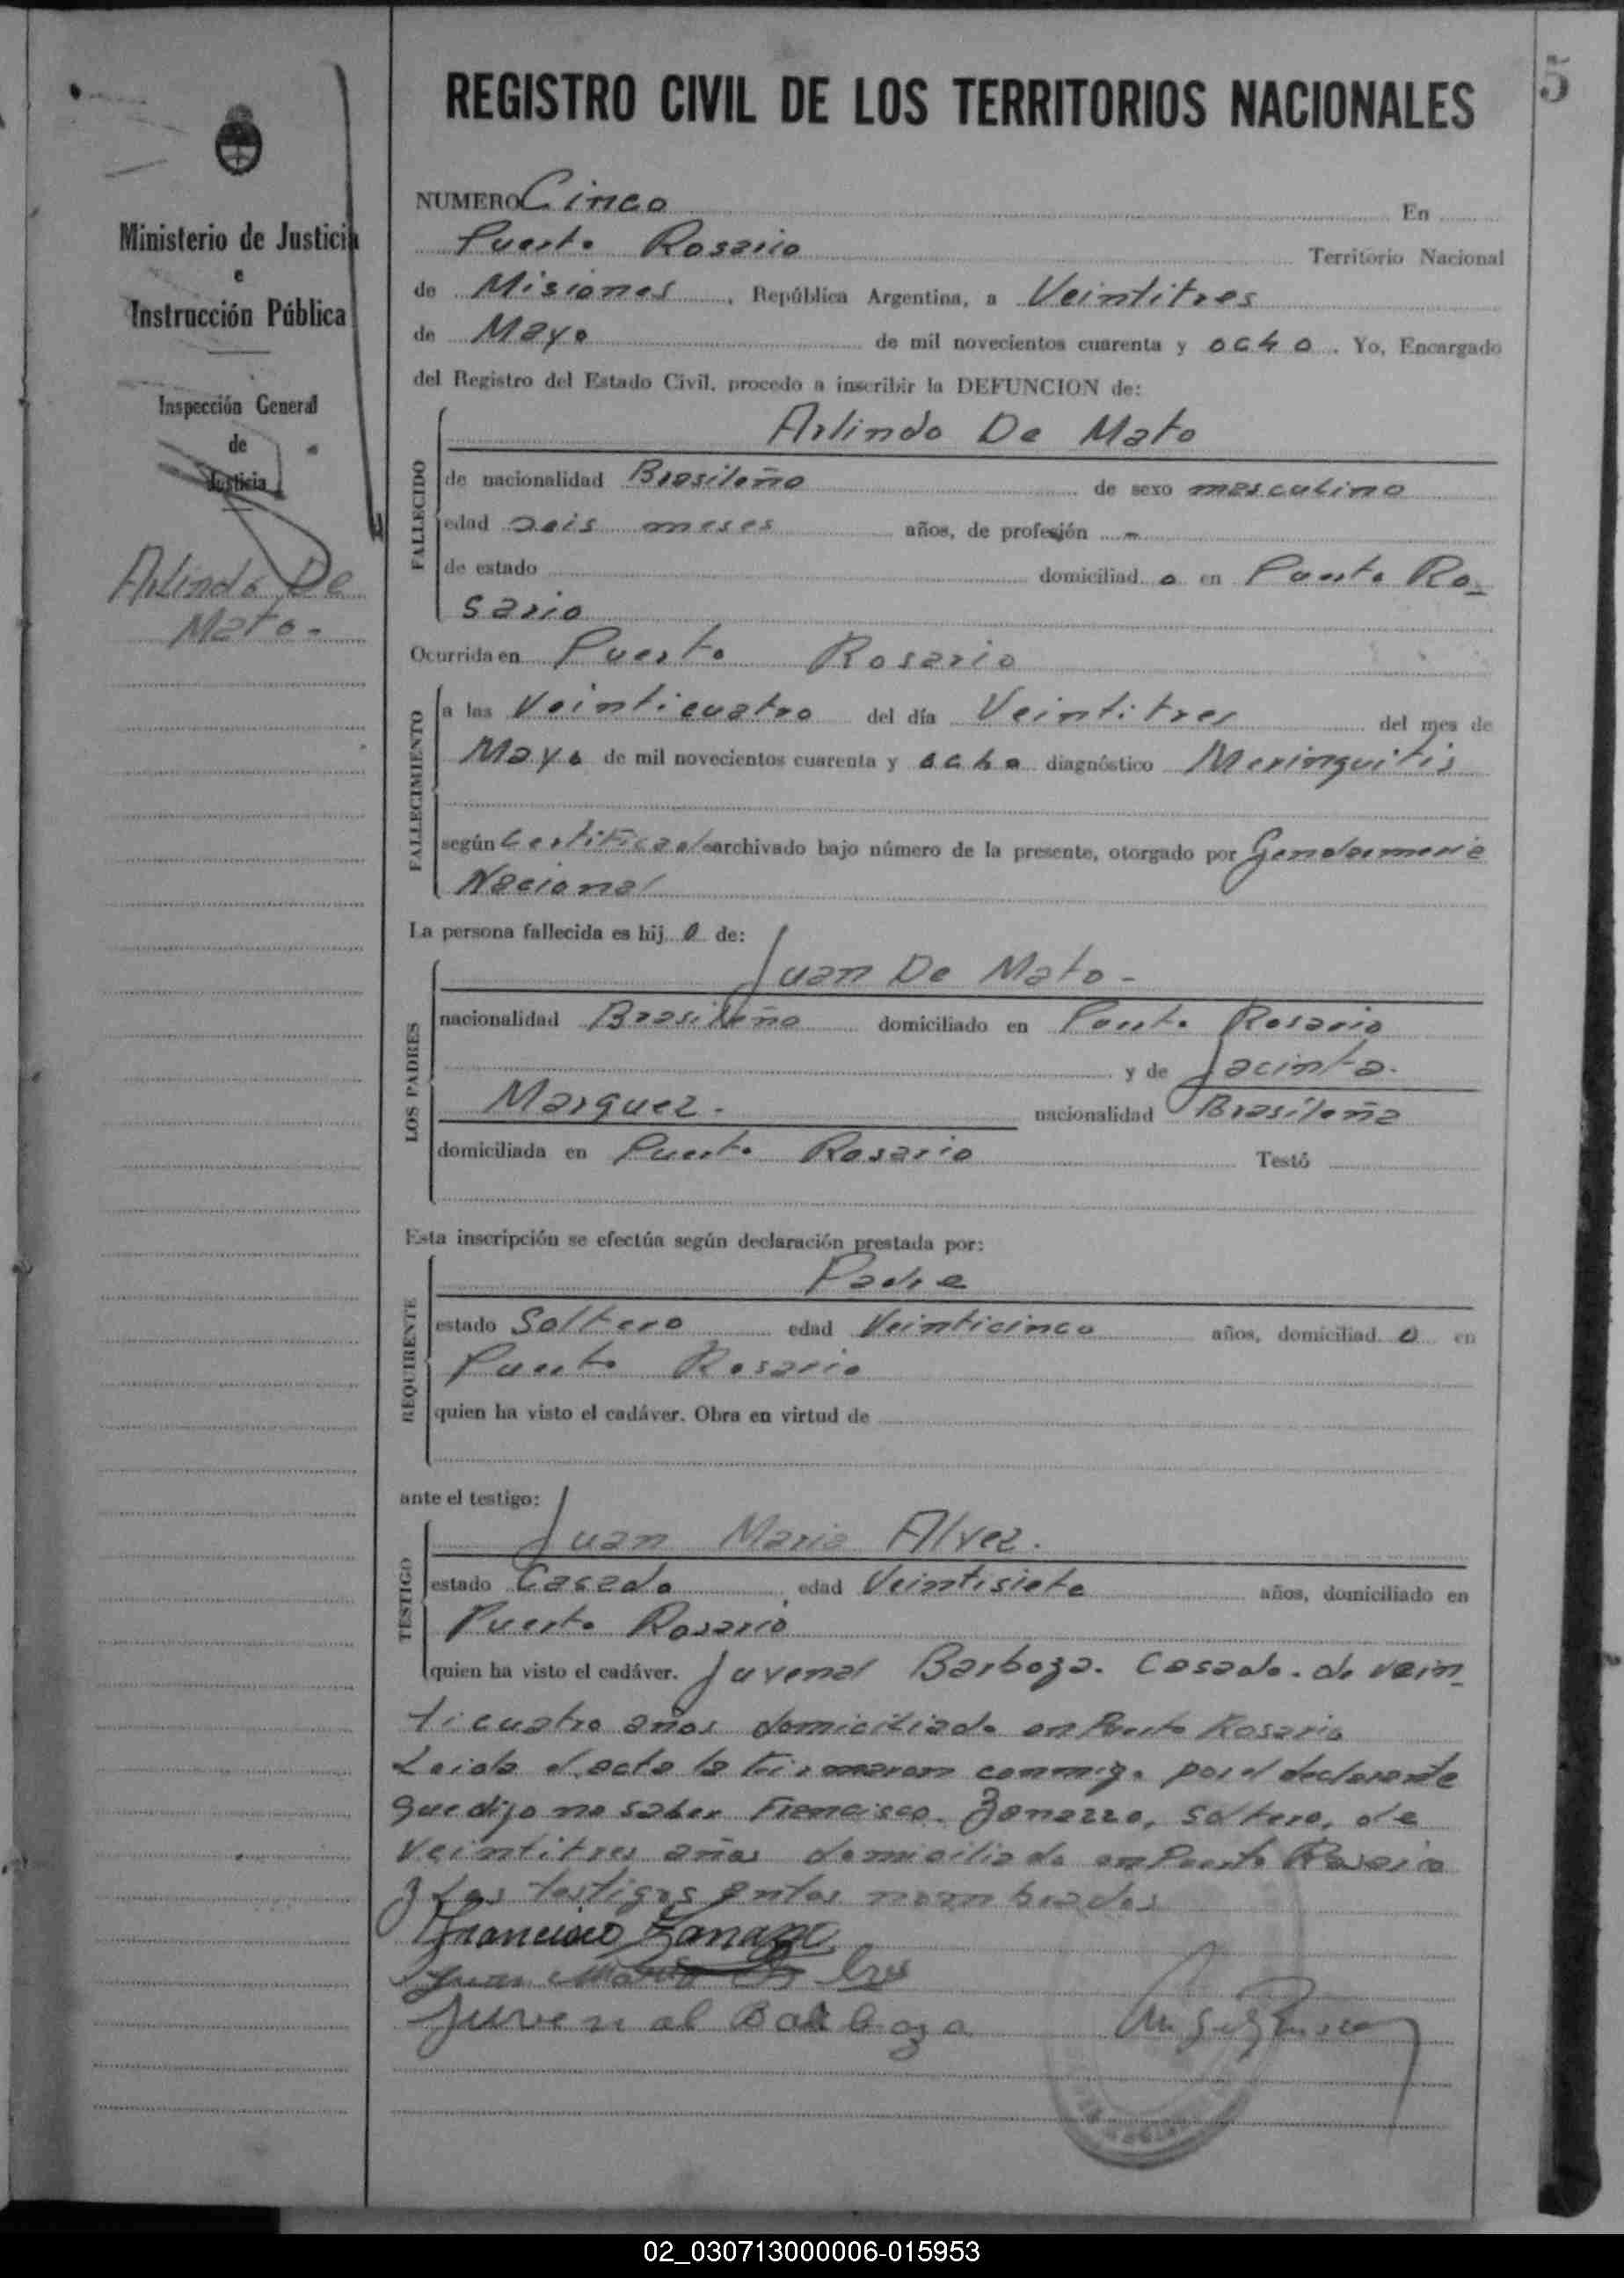 5
REGISTRO CIVIL DE LOS TERRITORIOS NACIONALES
Ministerio de Justicia
e
Instrucción Pública
Inspección General
de
Justicia
Arlindo De
Mato.-
NUMERO Cinco En
Puerto Rosario Territorio Nacional
de Misiones, República Argentina, a Veintitres
de Mayo de mil novecientos cuarenta y ocho. Yo, Encargado
del Registro del Estado Civil, procedo a inscribir la DEFUNCION de:
FALLECIDO
Arlindo De Mato
de nacionalidad Brasileño de sexo masculino
edad seis meses años, de profesión -
de estado domiciliad o en Puerto Ro-
sario
Ocurrida en Puerto Rosario
FALLECIMIENTO
a las Veinticuatro del día Veintitres del mes de
Mayo de mil novecientos cuarenta y ocho diagnóstico Meninguitis
según Certificado archivado bajo número de la presente, otorgado por Gendarmeria
Nacional
La persona fallecida es hij o de:
LOS PADRES
Juan De Mato-
nacionalidad Brasileño domiciliado en Puerto Rosario
y de Jacinta.
Marquez. nacionalidad Brasileña
domiciliada en Puerto Rosario Testó
Esta inscripción se efectúa según declaración prestada por:
REQUIRENTE
Padre
estado Soltero edad Veinticinco años, domiciliad o en
Puerto Rosario
quien ha visto el cadáver. Obra en virtud de
ante el testigo:
TESTIGO
Juan Maria Alvez.
estado Casado, edad Veintisiete años, domiciliado en
Puerto Rosario
quien ha visto el cadáver. Juvenal Barboza. Casado. de vein-
ticuatro años domiciliado en Puerto Rosario
Leida el acta la firmaron conmigo por el declarante
que dijo no saber Francisco Zanazzo, soltero, de
veintitres años domiciliado en Puerto Rosario
y los testigos antes nombrados
Francisco Zanazzo
Juan Maria
Juvenal Barboza
02_030713000006-015953